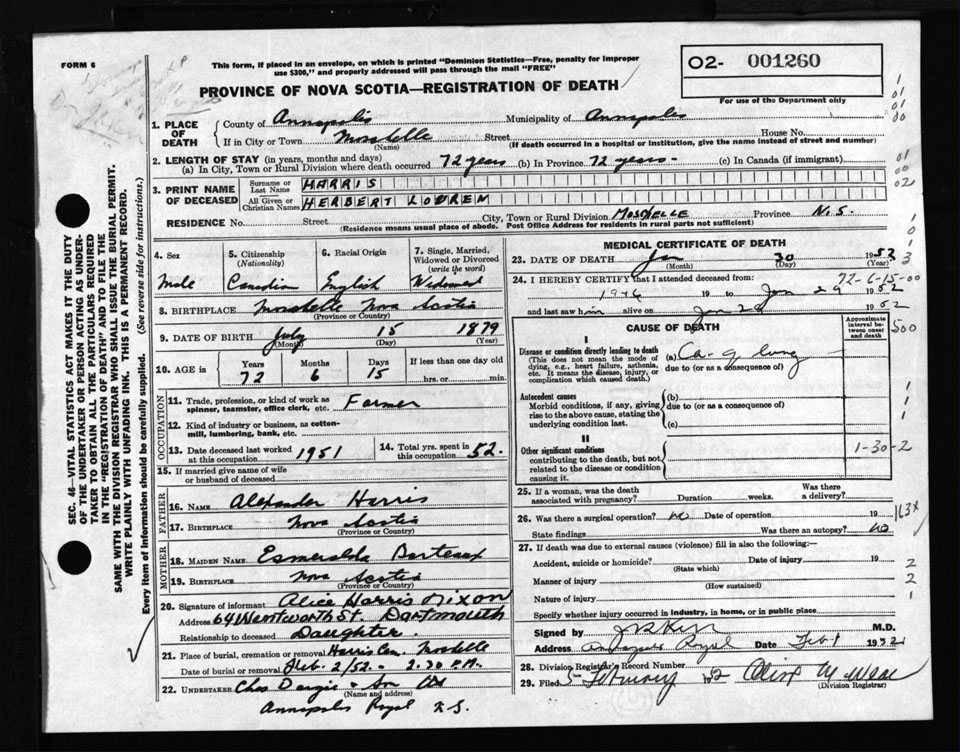 FORM 6
This form, if placed in an envelope, on which is printed "Dominion Statistics—Free, penalty for improper
use $300," and properly addressed will pass through the mail "FREE"
PROVINCE OF NOVA SCOTIA—REGISTRATION OF DEATH
O2- 001260
For use of the Department only
1. PLACE OF DEATH
County of Annapolis Municipality of Annapolis
If in City or Town Moschelle Street House No.
(Name) (If death occurred in a hospital or institution, give the name instead of street and number)
2. LENGTH OF STAY (in years, months and days)
(a) In City, Town or Rural Division where death occurred 72 years (b) In Province 72 years - (c) In Canada (if immigrant)
3. PRINT NAME OF DECEASED
Surname or Last Name HARRIS
All Given or Christian Names HERBERT LOUREN
RESIDENCE No. Street City, Town or Rural Division MOSCHELLE Province N.S.
(Residence means usual place of abode. Post Office Address for residents in rural parts not sufficient)
4. Sex- Male
5. Citizenship (Nationality) Canadian
6. Racial Origin English
7. Single, Married, Widowed or Divorced (write the word) Widowed
8. BIRTHPLACE Moschelle Nova Scotia
(Province or Country)
9. DATE OF BIRTH July 15 1879
(Month) (Day) (Year)
10. AGE in Years 72 Months 6 Days 15 If less than one day old
hrs. or min.
OCCUPATION
11. Trade, profession, or kind of work as spinner, teamster, office clerk, etc. Farmer
12. Kind of industry or business, as cotton-mill, lumbering, bank, etc.
13. Date deceased last worked at this occupation 1951
14. Total yrs. spent in this occupation 52.
15. If married give name of wife or husband of deceased
FATHER
16. NAME Alexander Harris
17. BIRTHPLACE Nova Scotia
(Province or Country)
MOTHER
18. MAIDEN NAME Esmeralda Barteaux
19. BIRTHPLACE Nova Scotia
(Province or Country)
20. Signature of informant Alice Harris Nixon
Address 64 Wentworth St. Dartmouth
Relationship to deceased Daughter.
21. Place of burial, cremation or removal Harris Cem. Moschelle
Date of burial or removal Feb. 2/52 - 2.30 P.M.
22. UNDERTAKER Chas Dargie & Son Ltd
(Name and address)
Annapolis Royal N.S.
MEDICAL CERTIFICATE OF DEATH
23. DATE OF DEATH Jan 30 1952
(Month) (Day) (Year)
72-6-15-00
24. I HEREBY CERTIFY that I attended deceased from:
1946 19 to Jan 29 1952
and last saw him alive on Jan 29 1952
CAUSE OF DEATH
Approximate interval between onset and death
I
Disease or condition directly leading to death
(This does not mean the mode of dying, e.g., heart failure, asthenia, etc. It means the disease, injury, or complication which caused death.)
(a) Ca. of lung
due to (or as a consequence of)
Antecedent causes
Morbid conditions, if any, giving rise to the above cause, stating the underlying condition last.
(b)
due to (or as a consequence of)
(c)
II
Other significant conditions
contributing to the death, but not related to the disease or condition causing it.
1-30-2
25. If a woman, was the death associated with pregnancy? Duration weeks. Was there a delivery?
26. Was there a surgical operation? no Date of operation 19
State findings Was there an autopsy? no
163x
27. If death was due to external causes (violence) fill in also the following:
Accident, suicide or homicide? Date of injury 19
(State which)
Manner of injury
(How sustained)
Nature of injury
Specify whether injury occurred in industry, in home, or in public place
Signed by M.D.
Address Annapolis Royal Date Feb 1 1952
28. Division Registrar's Record Number
29. Filed 5 February 1952
(Division Registrar)
SEC. 46—VITAL STATISTICS ACT MAKES IT THE DUTY
OF THE UNDERTAKER OR PERSON ACTING AS UNDER-
TAKER TO OBTAIN ALL THE PARTICULARS REQUIRED
IN THE "REGISTRATION OF DEATH" AND TO FILE THE
SAME WITH THE DIVISION REGISTRAR WHO SHALL ISSUE THE BURIAL PERMIT.
WRITE PLAINLY WITH UNFADING INK. THIS IS A PERMANENT RECORD.
Every item of information should be carefully supplied. (See reverse side for instructions.)